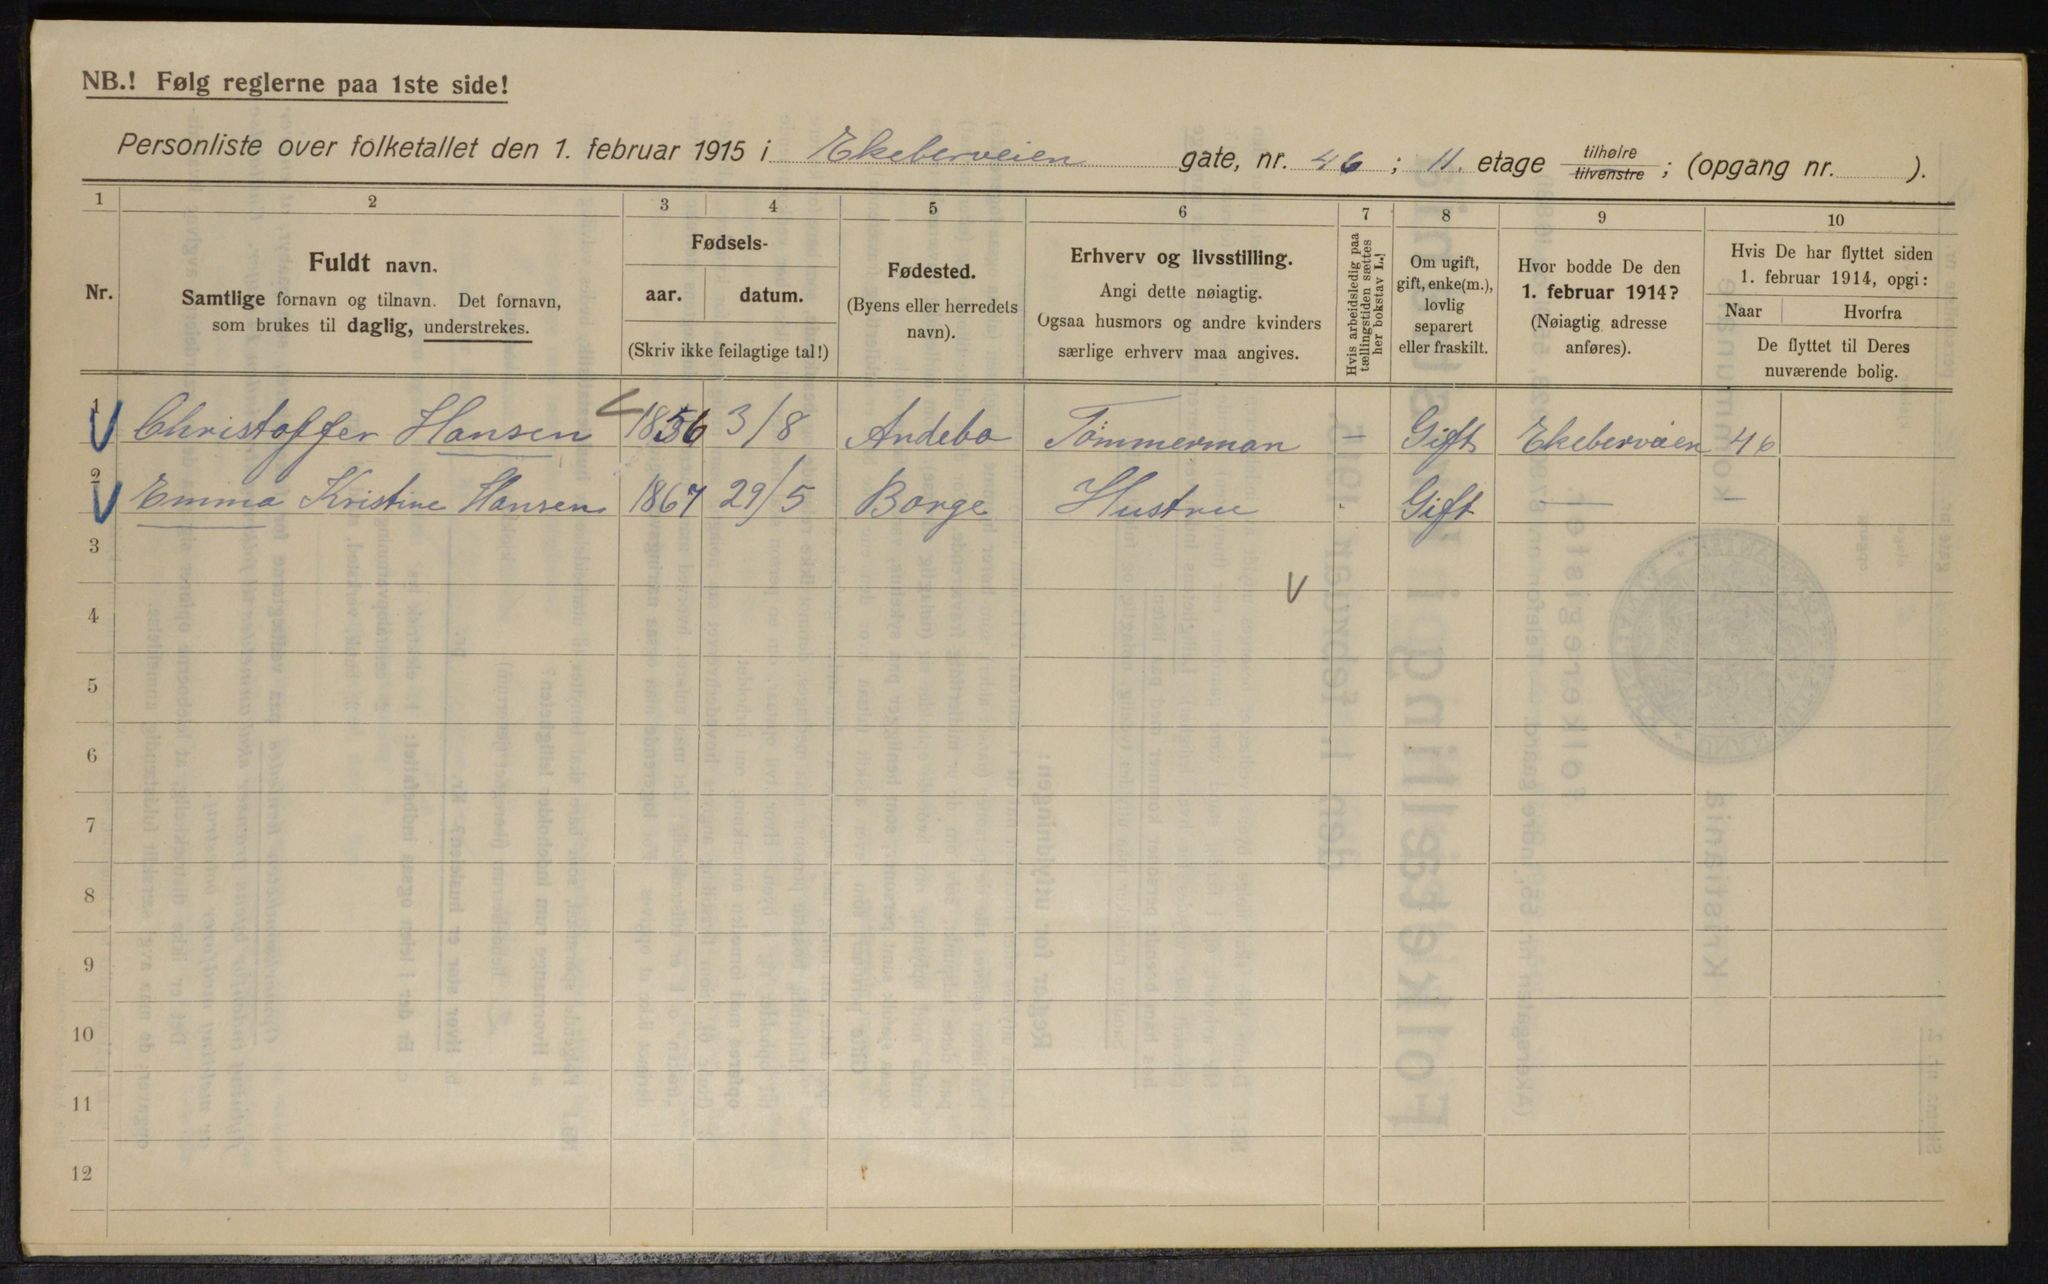 NB.! Følg reglerne paa 1ste side!
Personliste over folketallet den 1. februar 1915 i Ekeberveien gate, nr. 46 ; 11. etage tilhøire tilvenstre ; (opgang nr. ).
1 2 3 4 5 6 7 8 9 10
Nr.
Fuldt navn.
Samtlige fornavn og tilnavn. Det fornavn,
som brukes til daglig, understrekes.
Fødsels-
aar. datum.
(Skriv ikke feilagtige tal!)
Fødested.
(Byens eller herredets
navn).
Erhverv og livsstilling.
Angi dette nøiagtig.
Ogsaa husmors og andre kvinders
særlige erhverv maa angives.
Hvis arbeidsledig paa
tællingstiden sættes
her bokstav L.)
Om ugift,
gift, enke(m.),
lovlig
separert
eller fraskilt.
Hvor bodde De den
1. februar 1914?
(Nøiagtig adresse
anføres).
Hvis De har flyttet siden
1. februar 1914, opgi:
Naar Hvorfra
De flyttet til Deres
nuværende bolig.
1 Christoffer Hansen 1856 3/8 Andebo Tömmerman – Gift Ekeberveien 46
2 Emma Kristine Hansen 1867 29/5 Borge Hustru Gift — –
3
4
5
6
7
8
9
10
11
12